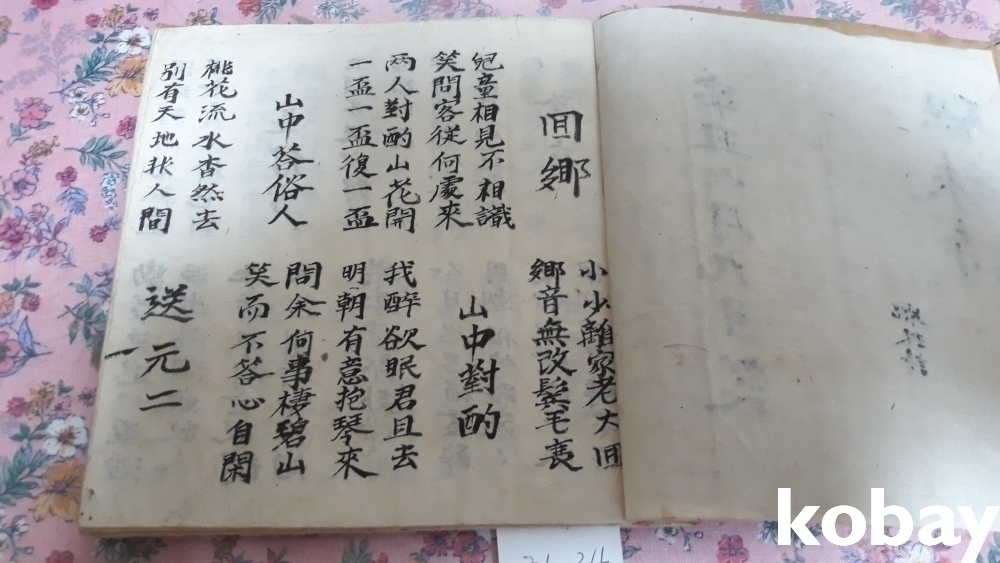 囬鄕
小少離家老大囬
鄕音無改鬂毛衰
兒童相見不相識
笑問客從何處來
山中對酌
两人對酌山花開
一盃一盃復一盃
我醉欲眠君且去
明朝有意抱琴來
山中荅俗人
問余何事棲碧山
笑而不荅心自閑
桃花流水杳然去
別有天地非人間
送元二
kobay